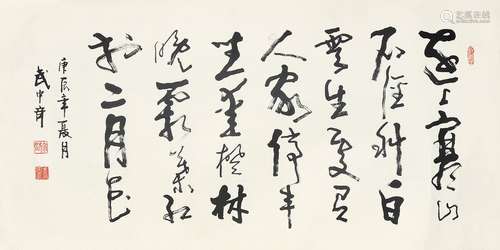 遠上寒山
石徑斜白
雲生處有
人家停車
坐愛楓林
晚霜葉紅
於二月花
庚辰年夏月
武中奇